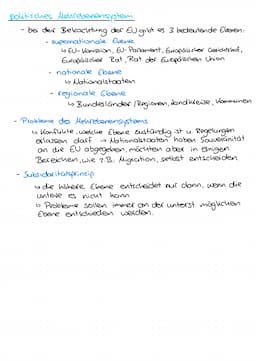 politisches Mehrebenensystem
- bei der Betrachtung der EU gibt es 3 bedeutende Ebenen.
- supranationale Ebene
↳ EU-Komission, EU-Parlament, Europäischer Gerichtshof,
Europäischer Rat, Rat der Europäischen Union
- nationale Ebene
↳ Nationalstaaten
- regionale Ebene
↳ Bundesländer / Regionen, Landkreise, Kommunen
- Probleme des Mehrebenensystems
↳ Konflikte, welche Ebene zuständig ist u. Regelungen
erlassen darf → Nationalstaaten haben Souveränität
an die EU abgegeben, möchten aber in einigen
Bereichen, wie z.B. Migration, selbst entscheiden
- Subsidaritätsprinzip
↳ die höhere Ebene entscheidet nur dann, wenn die
untere es nicht kann
↳ Probleme sollen immer an der unterst möglichen
Ebene entschieden werden.